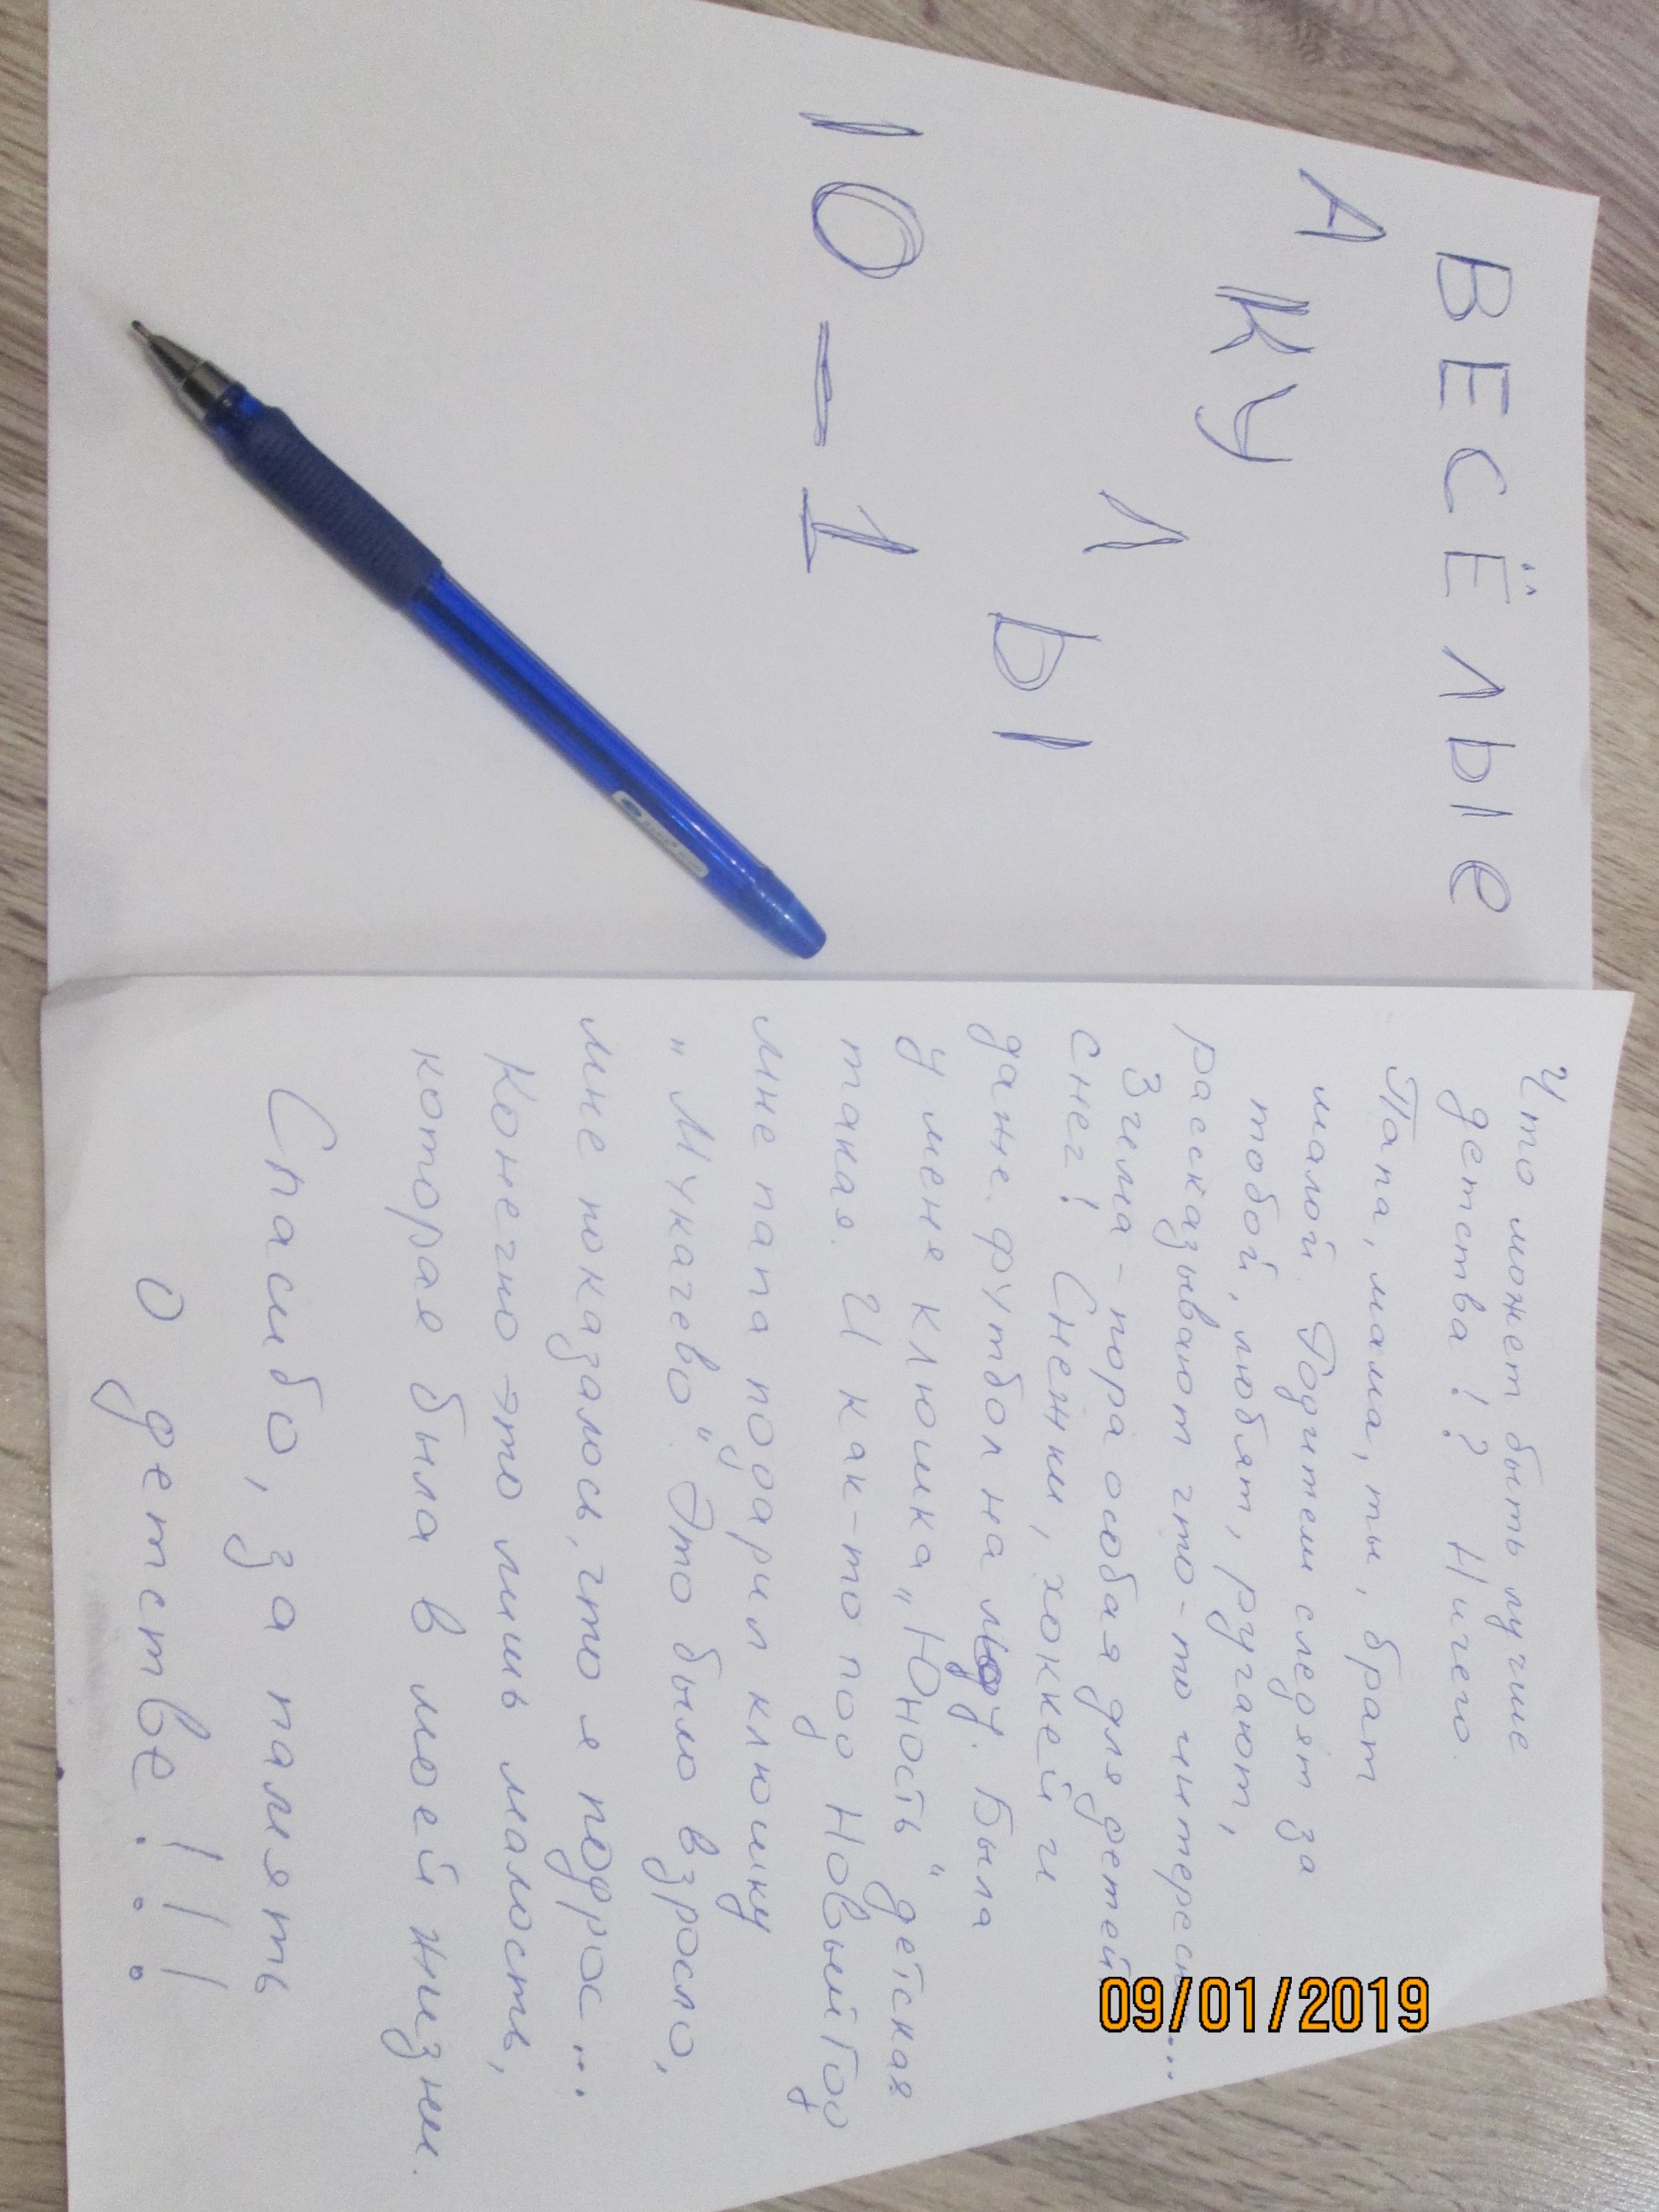 ВЕСЁЛЫЕ
АКУЛЫ
10-1
Что может быть лучше
детства!? Ничего.
Папа, мама, ты, брат
малой. Родители следят за
тобой, любят, ругают,
рассказывают что-то интересн...
Зима - пора особая для детей
снег! Снежки, хоккей и
даже футбол на льду. Была
у меня клюшка „Юность" детская
такая. И как-то под Новый Год
мне папа подарил клюшку
„Мукачево". Это было взросло,
мне показалось, что я подрос...
Конечно это лишь малость,
которая была в моей жизни.
Спасибо, за память
о детстве!!!
09/01/2019